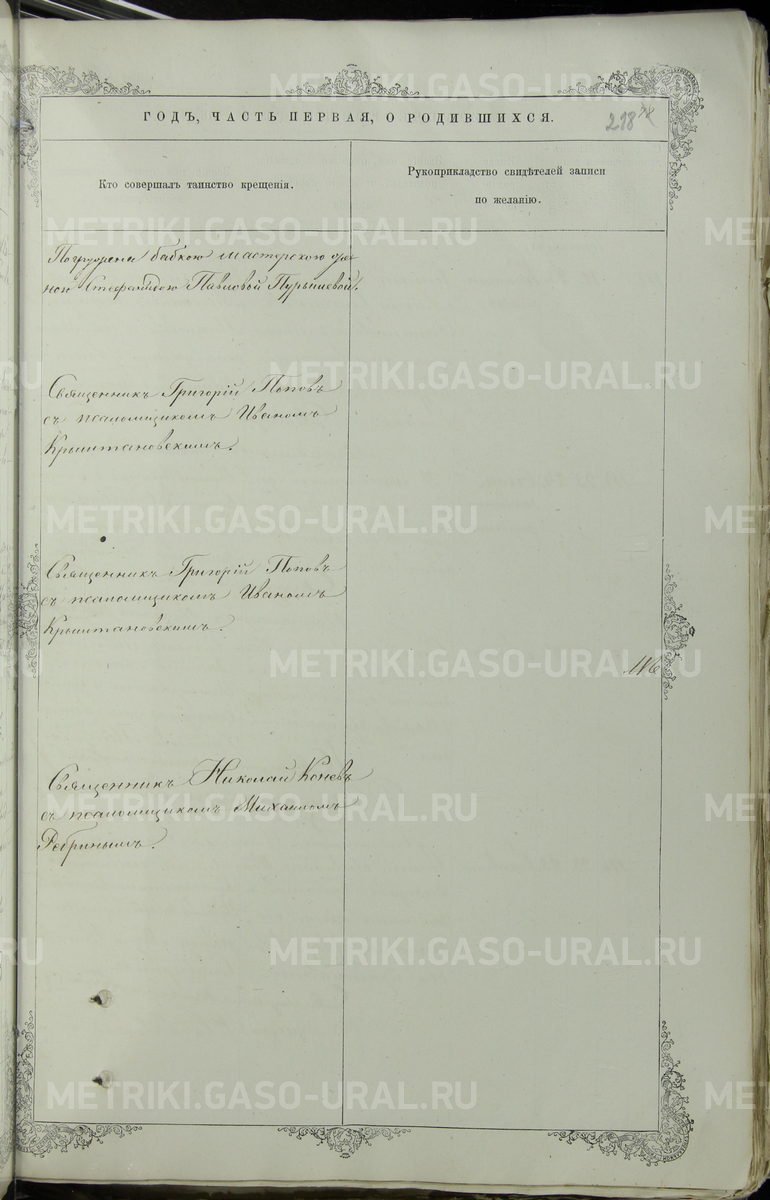 ГОДЪ, ЧАСТЬ ПЕРВАЯ, О РОДИВШИХСЯ.
218
Кто совершалъ таинство крещенія.
Рукоприкладство свидѣтелей записи
по желанію.
Погружена бабкою мастерскою
ною Павловой Пурышевой.
Священникъ Григорій Поповъ
съ псаломщикомъ Иваномъ
Крыштановскимъ.
Священникъ Григорій Поповъ
съ псаломщикомъ Иваномъ
Крыштановскимъ.
Священникъ Николай Коневъ
съ псаломщикомъ Михаиломъ
Ребринымъ.
METRIKI.GASO-URAL.RU